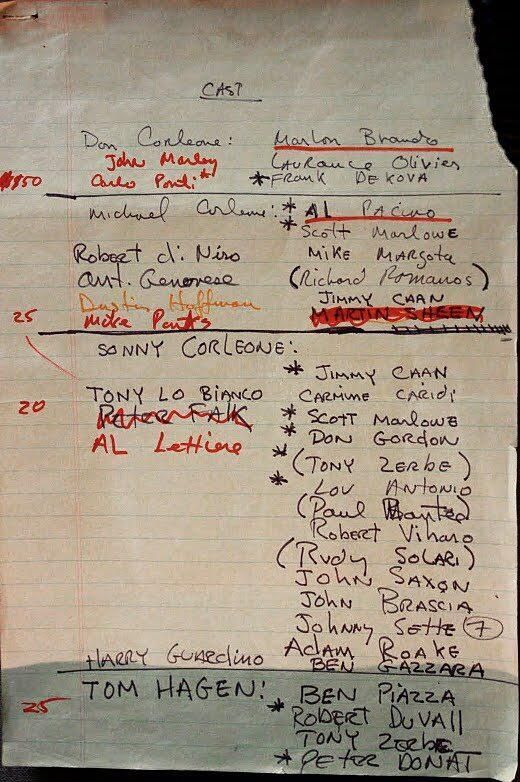 CAST
Don Corleone: Marlon Brando
John Marley Laurance Olivier
Carlo Ponti* * FRANK DEKOVA
150
Michael Corleone: * AL PACINO
* Scott Marlowe
Robert di Niro MIKE MARGOTA
Ant. Genovese (Richard Romanos)
Dustin Hoffman JIMMY CAAN
25 Mike Parks MARTIN SHEEN
SONNY CORLEONE:
* JIMMY CAAN
TONY LO BIANCO CARMINE CARIDI
20 Peter FALK * SCOTT MARLOWE
AL Lettiere * DON GORDON
* (TONY ZERBE)
* LOU ANTONIO
(Paul)
Robert Viharo
(RUDY SOLARI)
JOHN SAXON
JOHN BRASCIA
JOHNNY SETTE 7
ADAM ROAKE
HARRY GUARDINO BEN GAZZARA
TOM HAGEN: BEN PIAZZA
25 * ROBERT DUVALL
TONY ZERBE
* PETER DONAT